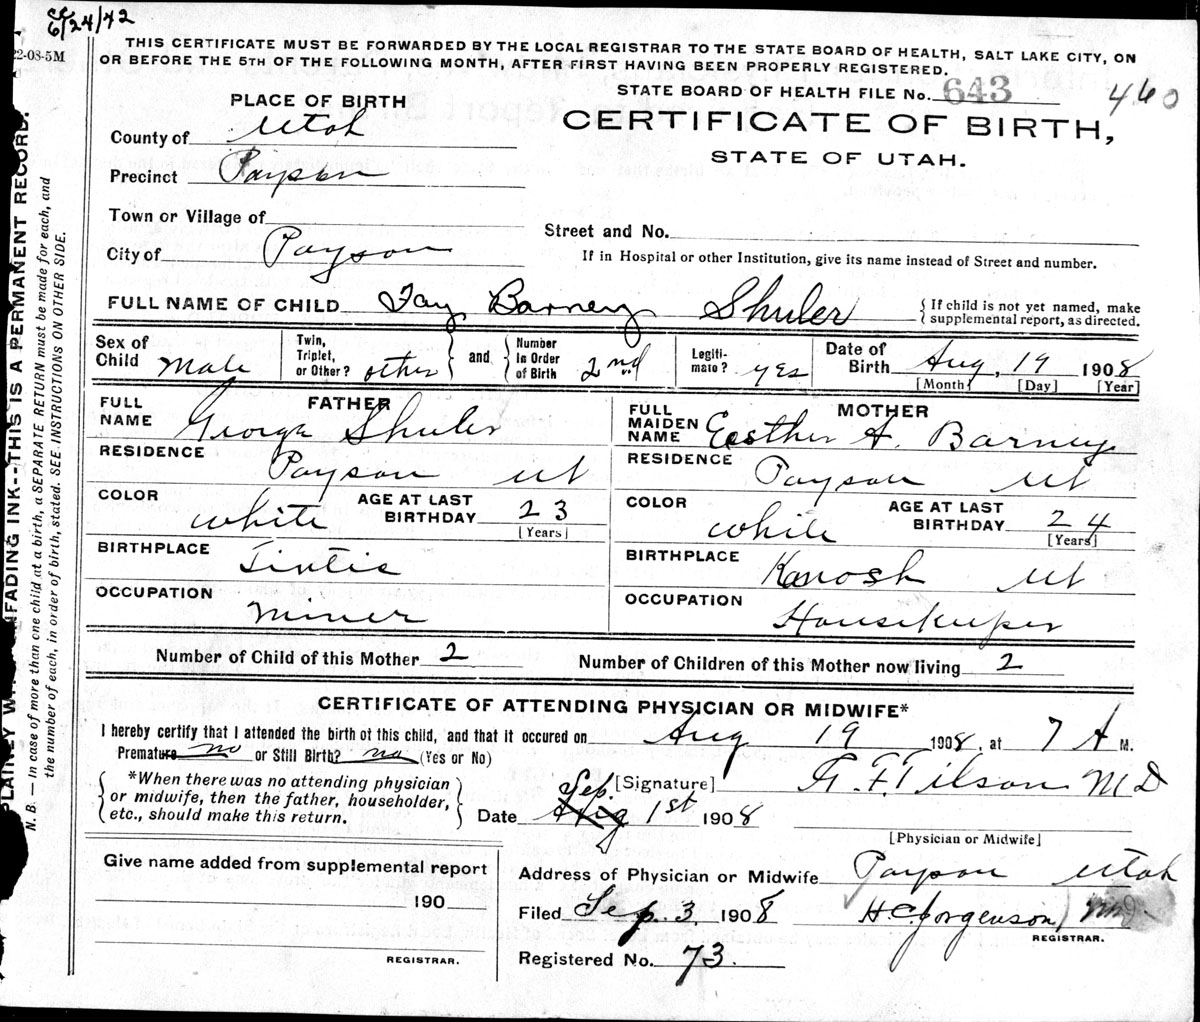 cc
6/24/42
22-08-5M
THIS CERTIFICATE MUST BE FORWARDED BY THE LOCAL REGISTRAR TO THE STATE BOARD OF HEALTH, SALT LAKE CITY, ON
OR BEFORE THE 5TH OF THE FOLLOWING MONTH, AFTER FIRST HAVING BEEN PROPERLY REGISTERED.
STATE BOARD OF HEALTH FILE No. 643 460
PLACE OF BIRTH
CERTIFICATE OF BIRTH,
STATE OF UTAH.
County of Utah
Precinct Payson
Town or Village of
Street and No.
City of Payson
If in Hospital or other Institution, give its name instead of Street and number.
FULL NAME OF CHILD Fay Barney Shuler
{ If child is not yet named, make
supplemental report, as directed.
Sex of Child Male
Twin, Triplet, or Other? other } and { Number in Order of Birth 2nd
Legitimate? yes
Date of Birth Aug, 19 1908
[Month] [Day] [Year]
FATHER
FULL NAME George Shuler
RESIDENCE Payson Ut
COLOR white AGE AT LAST BIRTHDAY 23
[Years]
BIRTHPLACE Tintic
OCCUPATION Miner
MOTHER
FULL MAIDEN NAME Eesther A. Barney
RESIDENCE Payson Ut
COLOR white AGE AT LAST BIRTHDAY 24
[Years]
BIRTHPLACE Kanosh Ut
OCCUPATION Housekeeper
Number of Child of this Mother 2 Number of Children of this Mother now living 2
CERTIFICATE OF ATTENDING PHYSICIAN OR MIDWIFE*
I hereby certify that I attended the birth of this child, and that it occured on Aug 19 1908, at 7 A M.
Premature no or Still Birth? no (Yes or No)
{ *When there was no attending physician
or midwife, then the father, householder,
etc., should make this return. }
[Signature] A. F. Tilson MD
Sep.
Date Aug 1st 1908
[Physician or Midwife]
Give name added from supplemental report
190
REGISTRAR.
Address of Physician or Midwife Payson Utah
Filed Sep. 3 1908 H C Jorgenson, MD
REGISTRAR.
Registered No. 73.
FADING INK--THIS IS A PERMANENT RECORD.
N. B. — In case of more than one child at a birth, a SEPARATE RETURN must be made for each, and
the number of each, in order of birth, stated. SEE INSTRUCTIONS ON OTHER SIDE.